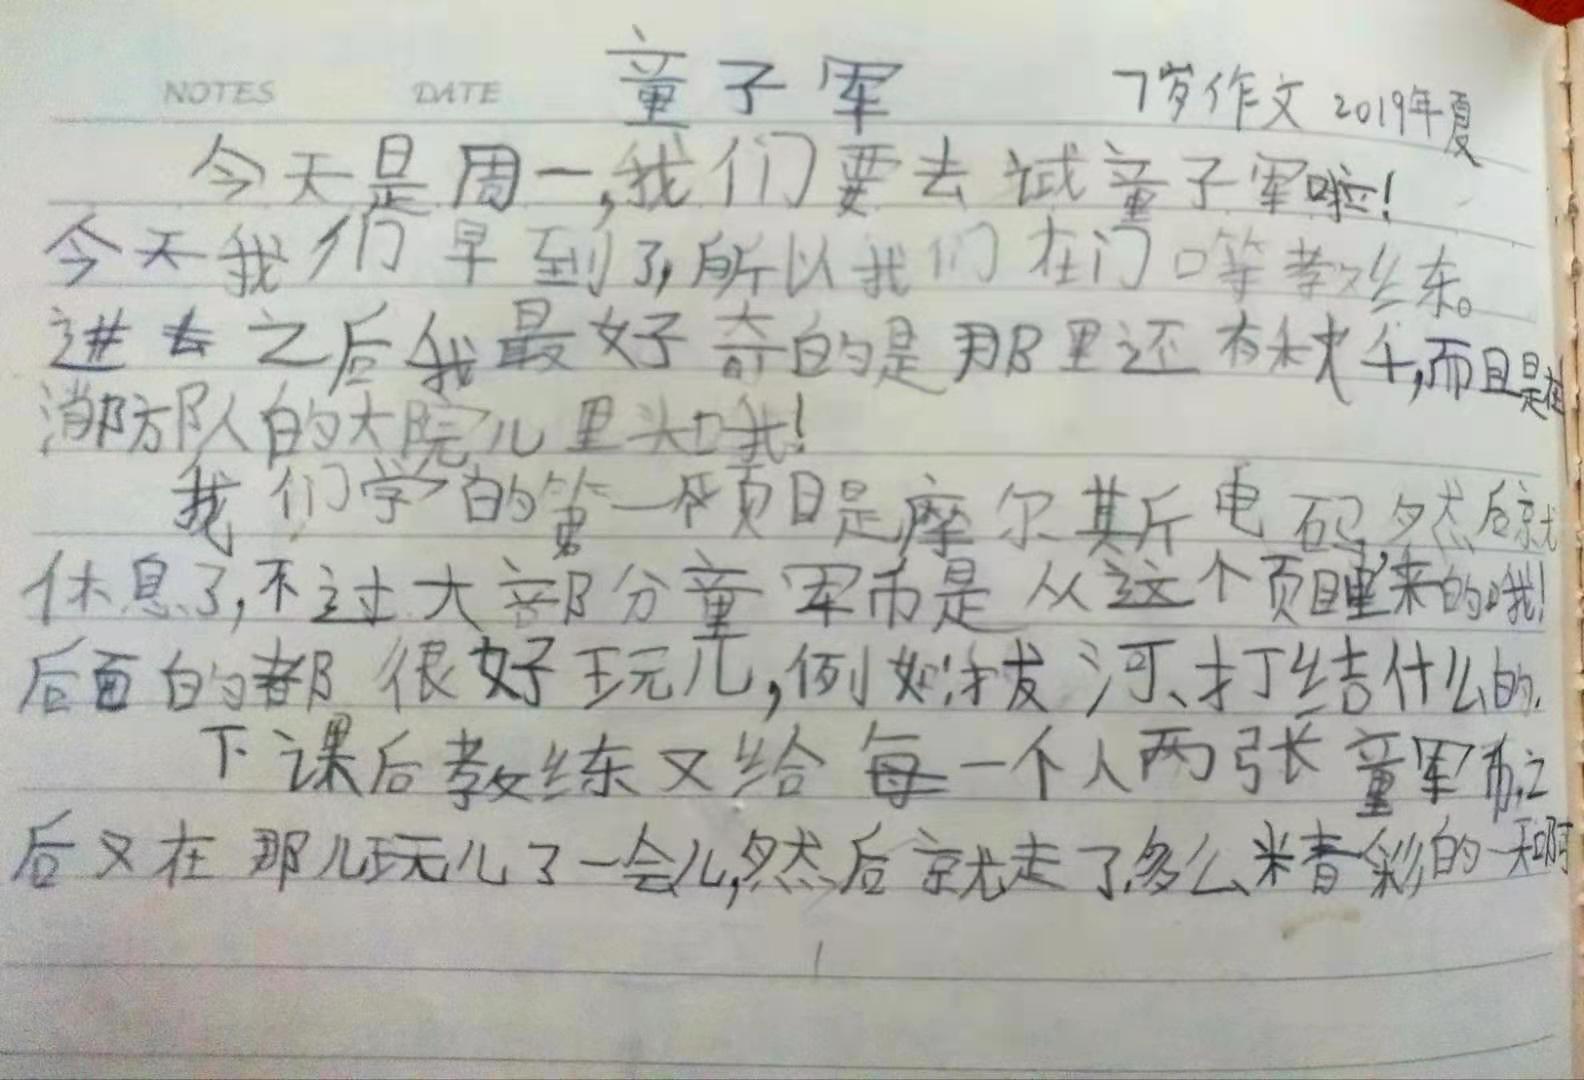 NOTES DATE 童子军 7岁作文 2019年夏
今天是周一,我们要去试童子军啦!
今天我们早到了,所以我们在门口等教练。
进去之后我最好奇的是那里还有秋千,而且是在
消防队的大院儿里头哦!
我们学的第一项目是摩尔其斤电码,然后就
休息了,不过大部分童军币是从这个页目里来的哦!
后面的都很好玩儿,例如:拔河、打结什么的.
下课后教练又给每一个人两张童军币,之
后又在那儿玩儿了一会儿,然后就走了,多么精彩的一天啊
!